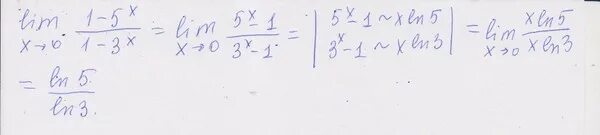 lim x→0 (1-5^x)/(1-3^x) = lim x→0 (5^x-1)/(3^x-1) = | 5^x-1 ~ x ln 5 3^x-1 ~ x ln 3 | = lim x→0 (x ln 5)/(x ln 3)
= ln 5 / ln 3.